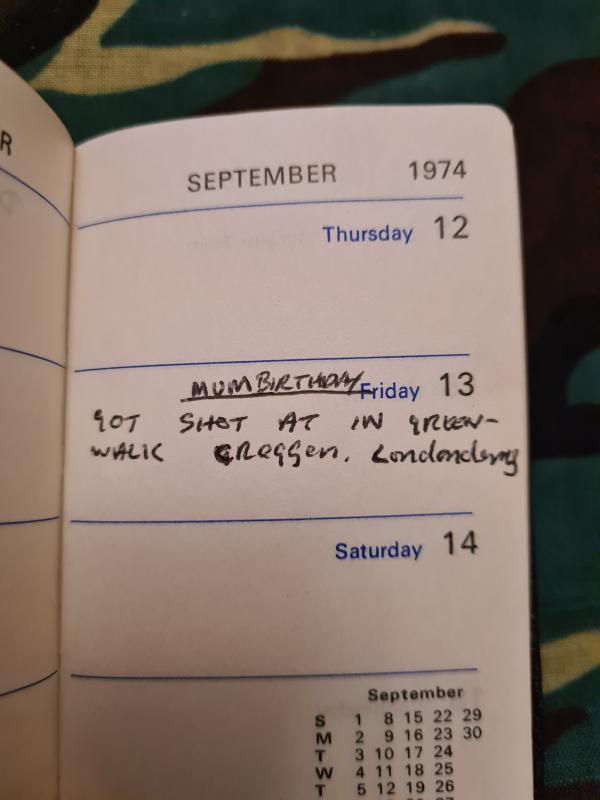 R
SEPTEMBER 1974
Thursday 12
MUM BIRTHDAY Friday 13
GOT SHOT AT IN GREEN-
WALK CReggen. Londonderry
Saturday 14
September
S 1 8 15 22 29
M 2 9 16 23 30
T 3 10 17 24
W 4 11 18 25
T 5 12 19 26